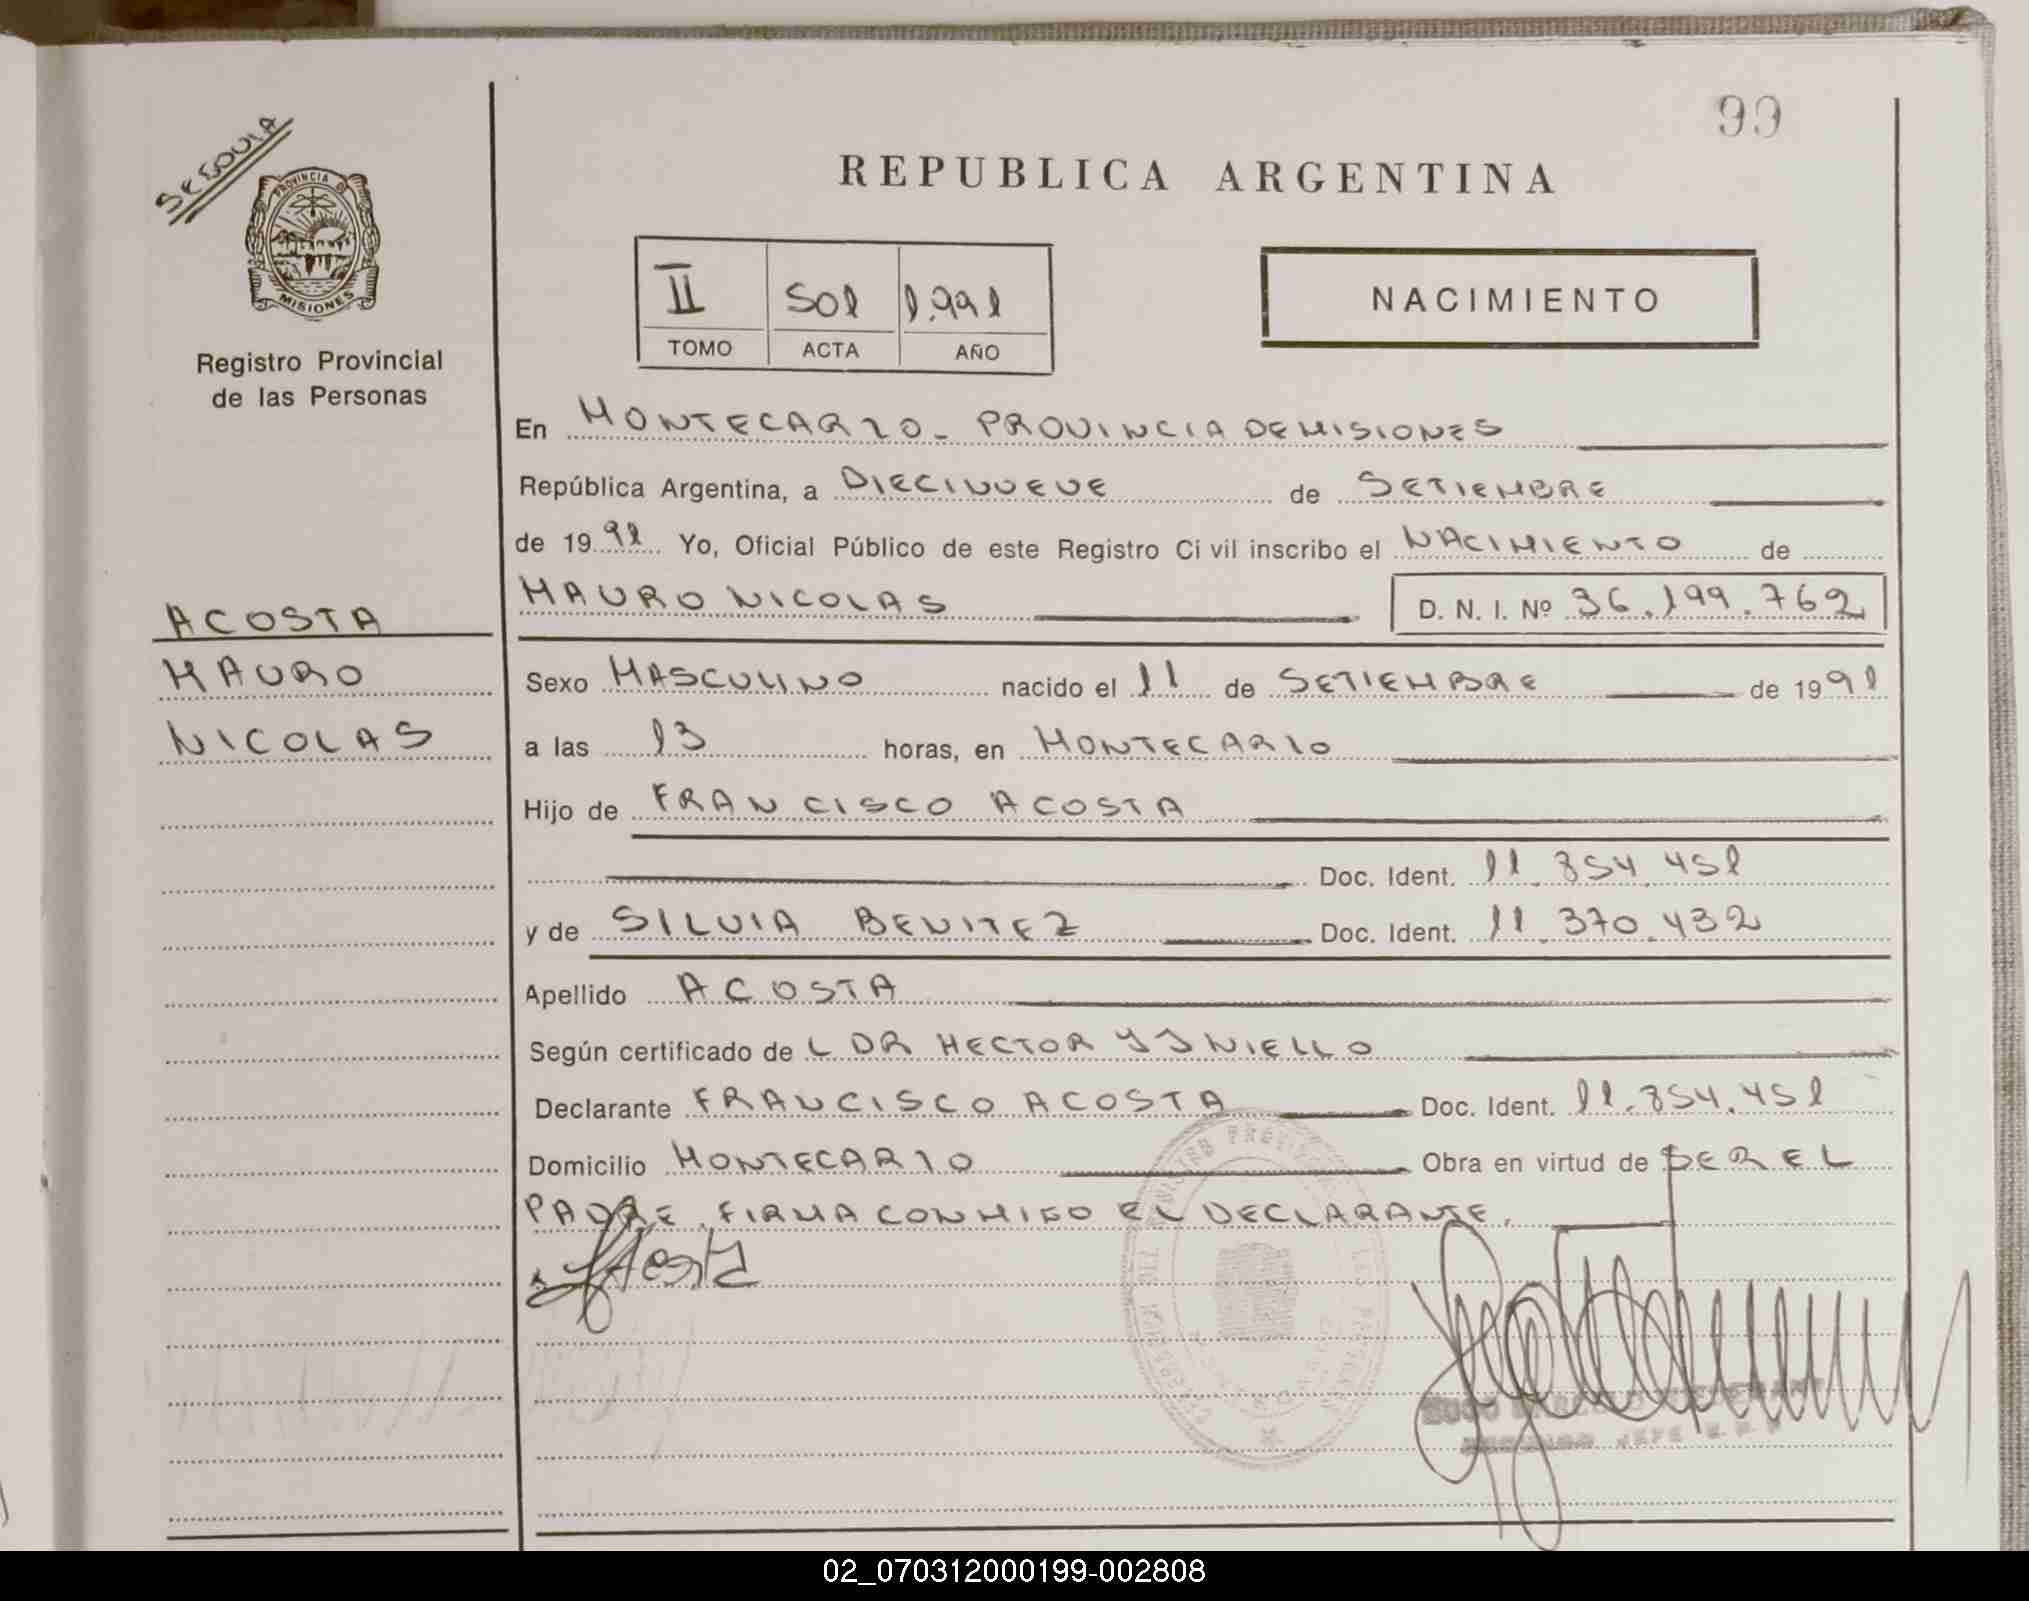 99
SEGOVIA
PROVINCIA DE
MISIONES
Registro Provincial
de las Personas
REPUBLICA ARGENTINA
II 501 1.991
TOMO ACTA AÑO
NACIMIENTO
En MONTECARLO - PROVINCIA DE MISIONES
República Argentina, a DIECINUEVE de SETIEMBRE
de 1991 Yo, Oficial Público de este Registro Civil inscribo el NACIMIENTO de
MAURO NICOLAS D. N. I. Nº 36.199.762
ACOSTA
MAURO
NICOLAS
Sexo MASCULINO nacido el 11 de SETIEMBRE de 1991
a las 13 horas, en MONTECARLO
Hijo de FRANCISCO ACOSTA
Doc. Ident. 11.854.451
y de SILVIA BENITEZ Doc. Ident. 11.370.432
Apellido ACOSTA
Según certificado de L DR HECTOR Y JNIELLO
Declarante FRANCISCO ACOSTA Doc. Ident. 11.854.451
Domicilio MONTECARLO Obra en virtud de SER EL
PADRE. FIRMA CONMIGO EL DECLARANTE.
Acosta
02_070312000199-002808